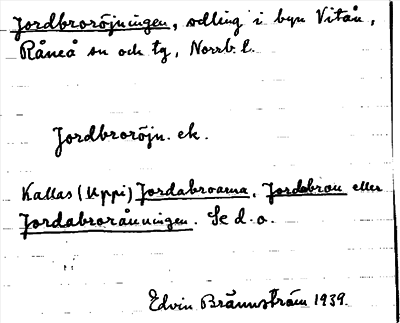 Jordbroröjningen, odling i byn Vitån,
Råneå sn och tg, Norrb. l.
Jordbroröjn. ek.
Kallas (Uppi) Jordabroarna, Jordabron eller
Jordabroränningen. Se d. o.
Edvin Brännström 1939.